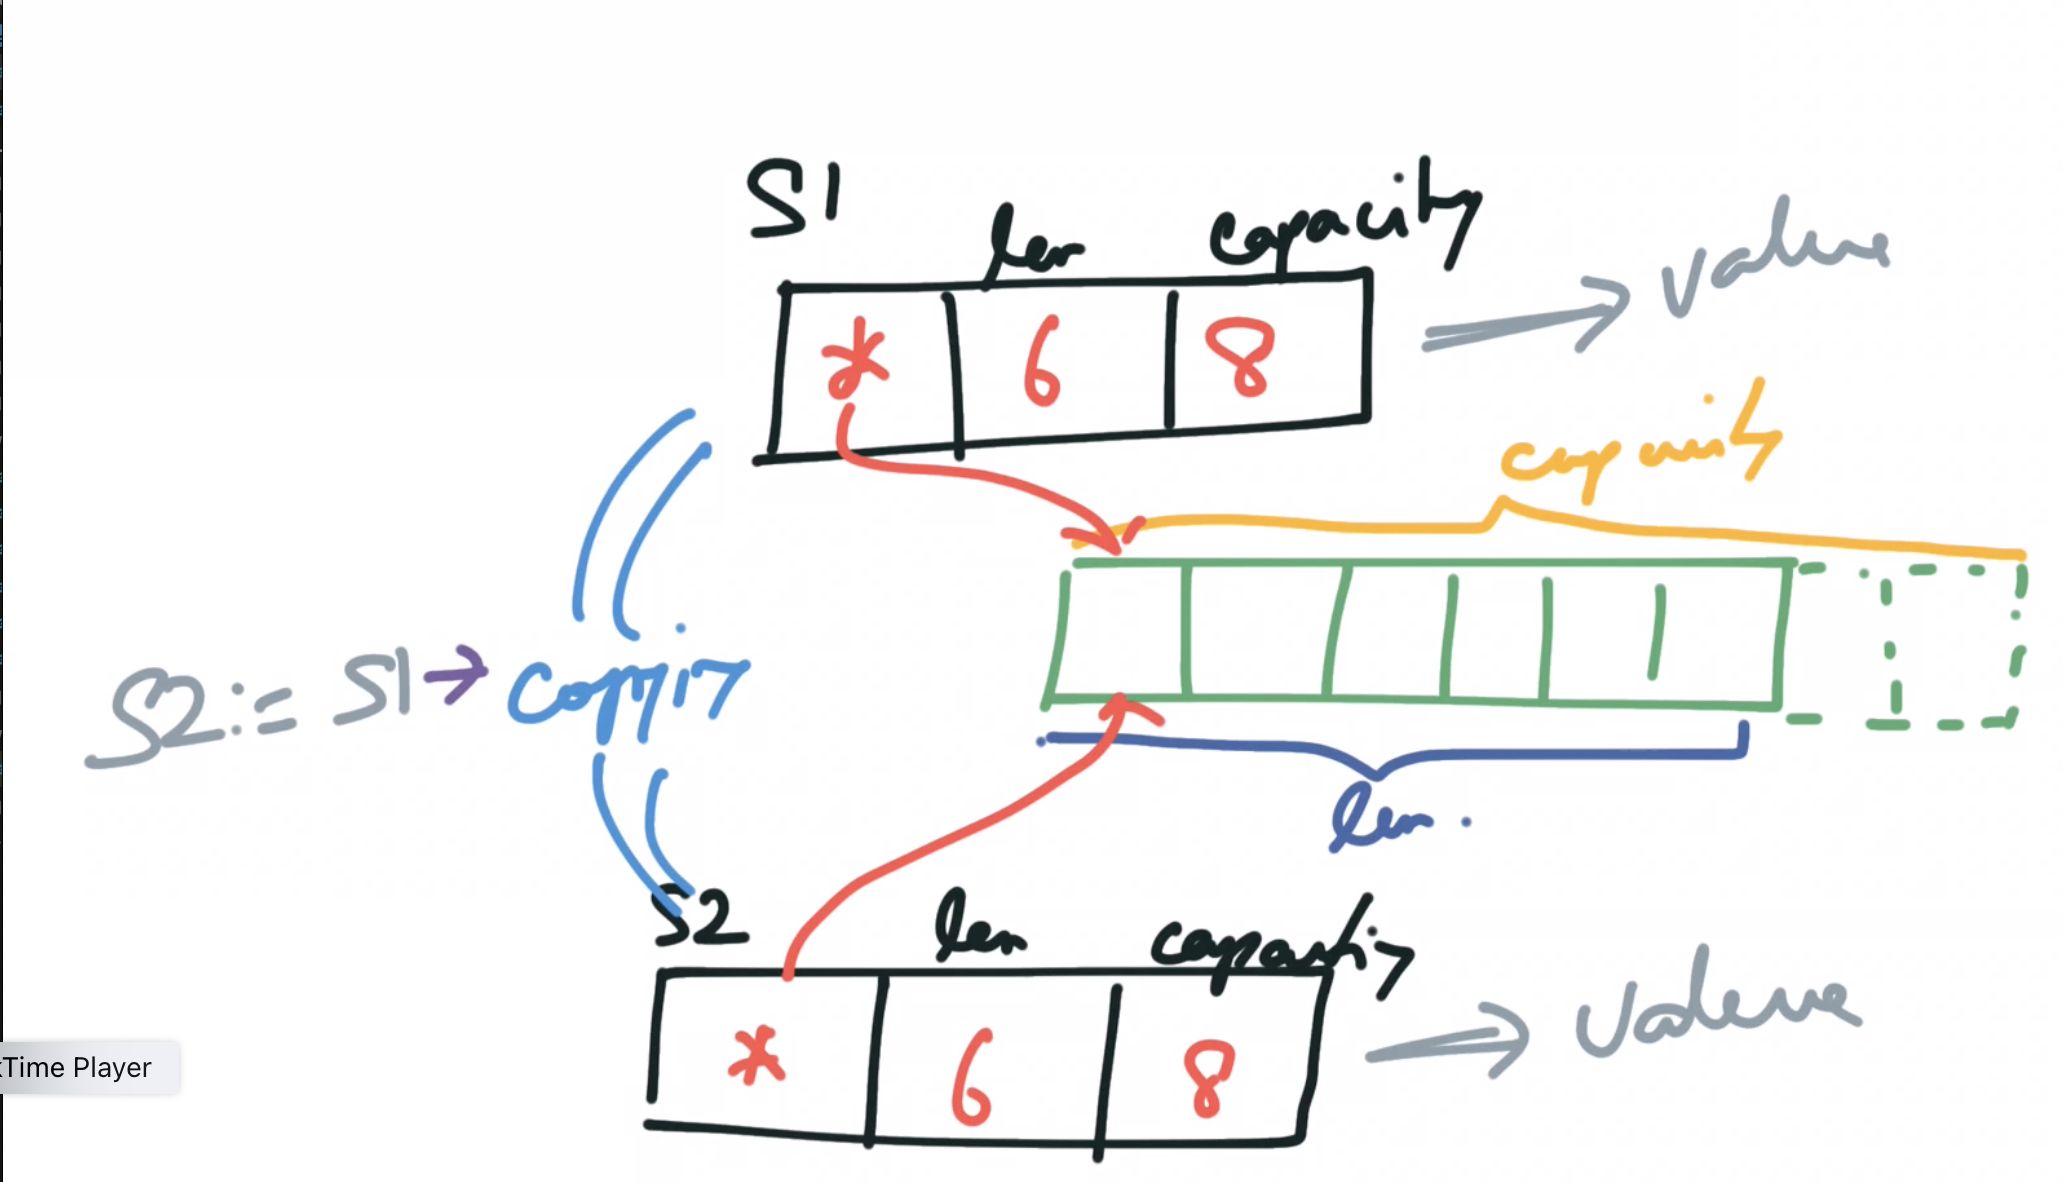 S1
len capacity
* 6 8
value
capacity
S2 := S1 →
len.
S2
len capacity
* 6 8
value
Time Player